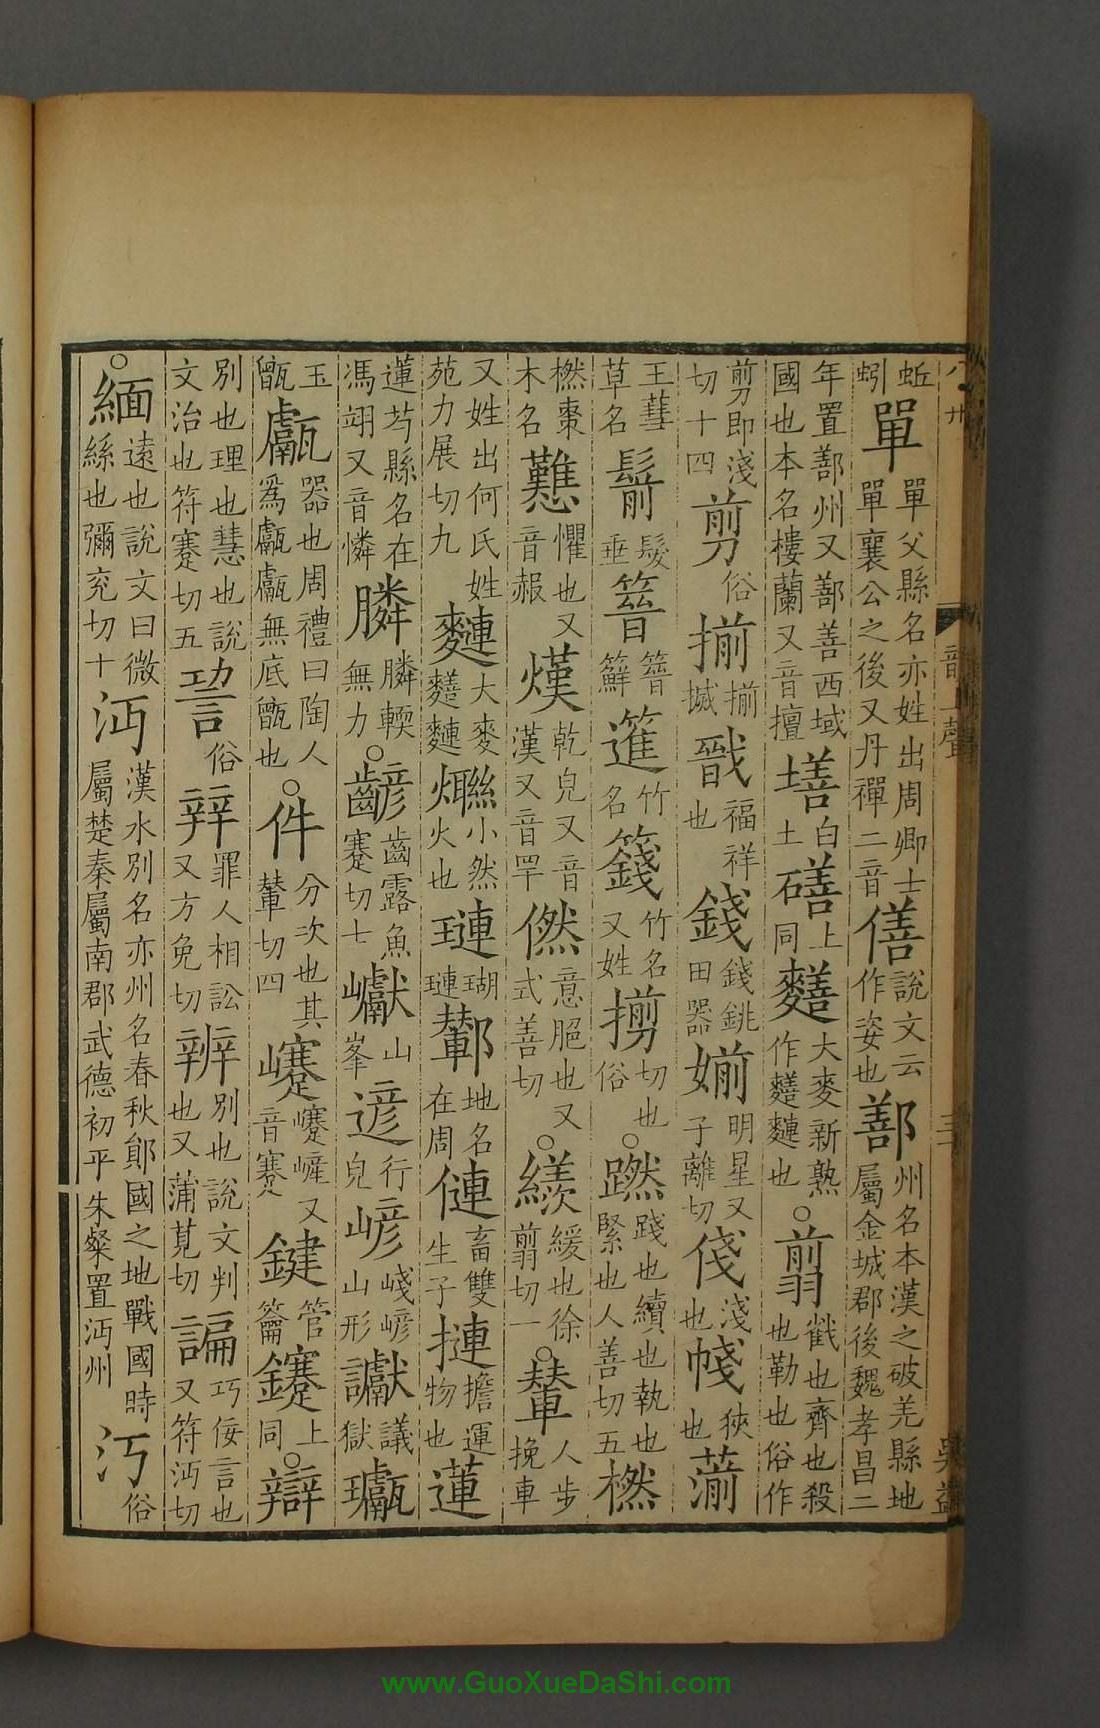 蚯蚓單單父縣名亦姓出周卿士單襄公之後又丹禪二音僐說文云作姿也鄯州名本漢之破羌縣地屬金城郡後魏孝昌二
年置鄯州又鄯善西域國也本名樓蘭又音擅墡白土磰上同䵛大麥新熟作䵛麵也○翦截也齊也殺也勒也俗作
剪即淺切十四剪俗揃揃搣戩福祥也錢錢銚田器媊明星又子離切俴淺也帴狹也葥
王蔧草名鬋髮垂䈕䈕籍䉍竹名籛竹名又姓㨵切也俗○蹨踐也續也執也緊也人善切五橪
橪棗木名戁懼也又音赧熯乾皃又音漢又音罕㒄意脆也又式善切○䌞緩也徐翦切一○輦人步挽車
又姓出何氏姓苑力展切九䜆大麥䵛䜆㷠小然火也璉瑚璉鄻地名在周僆畜雙生子摙擔運物也蓮
蓮芍縣名在馮翊又音憐膦膦輭無力○齴齒露魚蹇切七巘山峯遃行皃嵃嶘嵃山形讞議獄瓛
玉甑甗器也周禮曰陶人爲甗甗無底甑也○件分次也其輦切四㠾㠾嵼又音蹇鍵管籥鑳上同○辯
別也理也慧也說文治也符蹇切五䛒俗辡罪人相訟又方免切辨別也說文判也又蒲莧切諞巧佞言也又符沔切
○緬遠也說文曰微絲也彌兗切十沔漢水別名亦州名春秋鄖國之地戰國時屬楚秦屬南郡武德初平朱粲置沔州汅俗
www.GuoXueDaShi.com